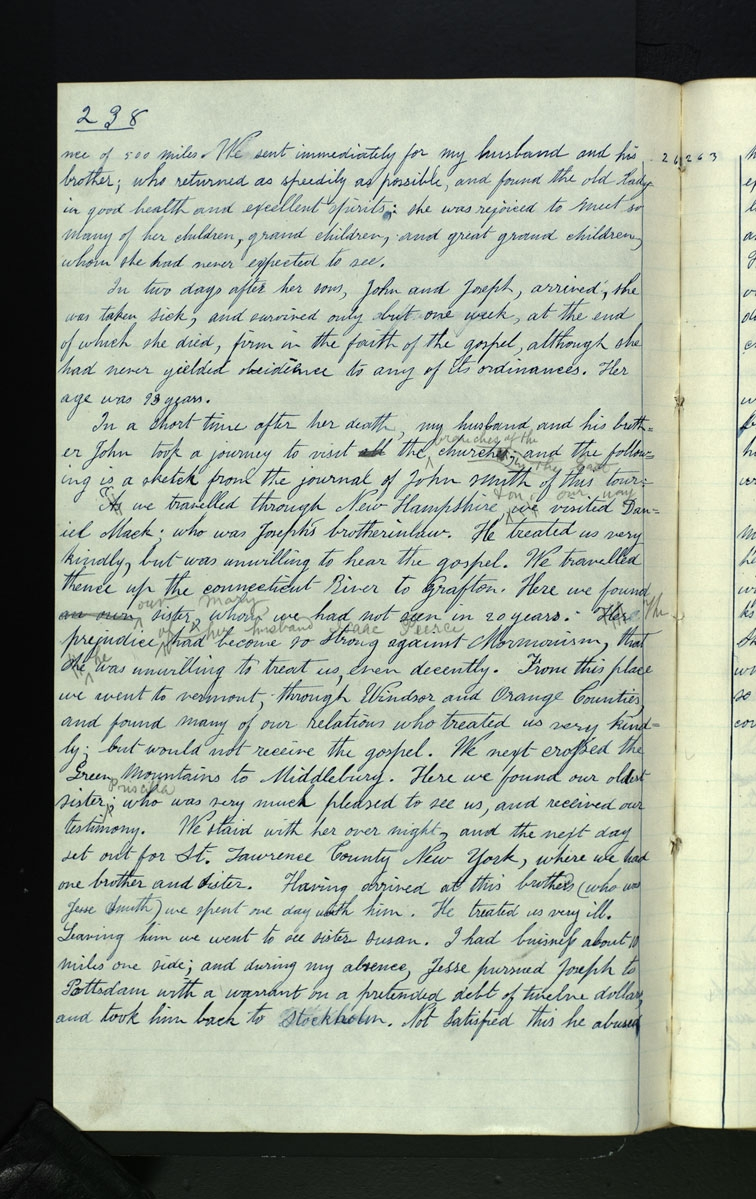 238
nce of 500 miles. We sent immediately for my husband and his
brother; who returned as speedily as possible, and found the old Lady
in good health and excellent spirits: she was rejoiced to meet so
many of her children, grand children, and great grand children,
whom she had never expected to see.
In two days after her sons, John and Joseph, arrived, she
was taken sick, and survived only but one week, at the end
of which she died, firm in the faith of the gospel, although she
had never yielded obeidience to any of its ordinances. Her
age was 93 years.
In a short time after her death, my husband, and his broth=
branches of the
er John took a journey to visit all the churches; and the follow=
in the East
ing is a sketch from the journal of John Smith of this tour:
on our way
As we travelled through New Hampshire, we visited Dan=
iel Mack; who was Joseph's brotherinlaw. He treated us very
kindly, but was unwilling to hear the gospel. We travelled
thence up the connecticut River to Grafton. Here we found
our Mary
an our sister, whom we had not seen in 20 years. Her The
of her husband Isaac Peerce
prejudice had become so strong against Mormonism, that
he
she was unwilling to treat us, even decently. From this place
we went to vermont, through Windsor and Orange Counties,
and found many of our relations who treated us very kind=
ly; but would not receive the gospel. We next crossed the
Green Mountains to Middlebury. Here we found our oldest
Priscilla
sister; who was very much pleased to see us, and received our
testimony. We staid with her over night, and the next day
set out for St. Lawrence County New York, where we had
one brother and sister. Having arrived at this brothers (who was
Jesse Smith) we spent one day with him. He treated us very ill.
Leaving him we went to see sister susan. I had buisness about 10
miles one side; and during my absence, Jesse pursued Joseph to
Pottsdam with a warrant on a pretended debt of twelve dollars,
and took him back to Stockholm. Not satisfied this he abused